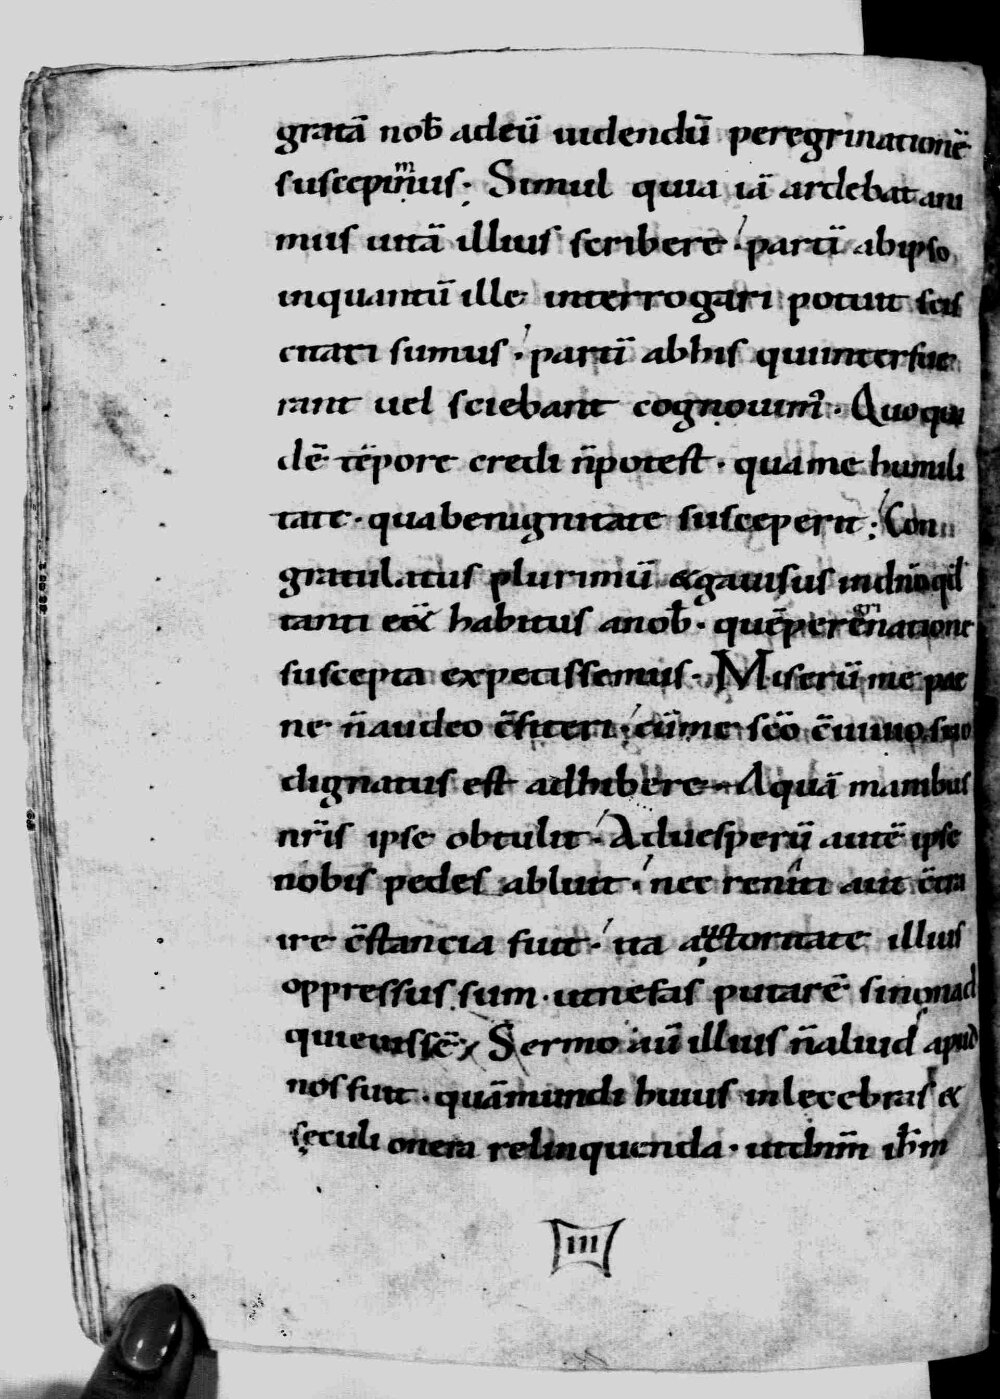 gratā nob̄ adeū uidendū peregrinationē
suscepim̄us· Simul quia iā ardebat ani
mus uitā illius scribere· partī abipso
inquantū ille interrogari potuit scis
citati sumus· partī abhis quiinterfue
rant uel sciebant cognouim᷒· Quo qui
dē tēpore credi n̄potest· quame humili
tate· quabenignitate susceperit; Con
gratulatus plurimū &gauisus indn̄o qd̄
tanti eēt habitus anob̄· quēperegrinatione
suscepta expetissemus· Miserū me pae
ne n̄audeo c̄fiteri· cūme sc̄o c̄uiuio suo
dignatus est adhibere· Aquā manibus
nr̄is ipse obtulit· Aduesperū autē ipse
nobis pedes abluit· nec reniti aut c̄tra
ire c̄stancia fuit· ita auctoritate illius
oppressus sum· utnefas putarē sinonad
quieuissē· Sermo aū illius n̄aliud apud
nos fuit· quāmundi huius inlecebras &
sęculi onera relinquenda· utdnm̄ ih̄m
III